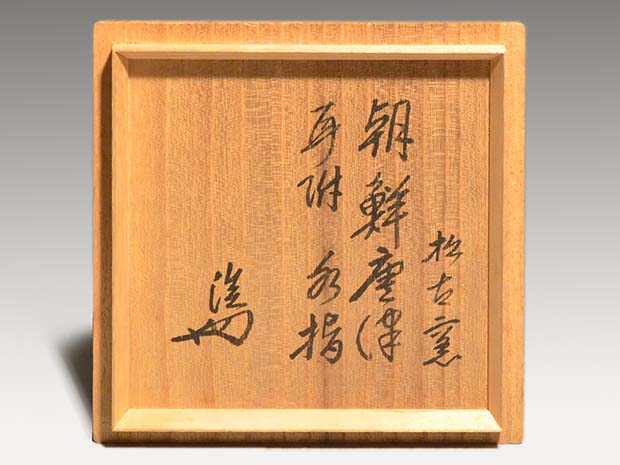 松古窯
朝鮮唐津
耳附 水指